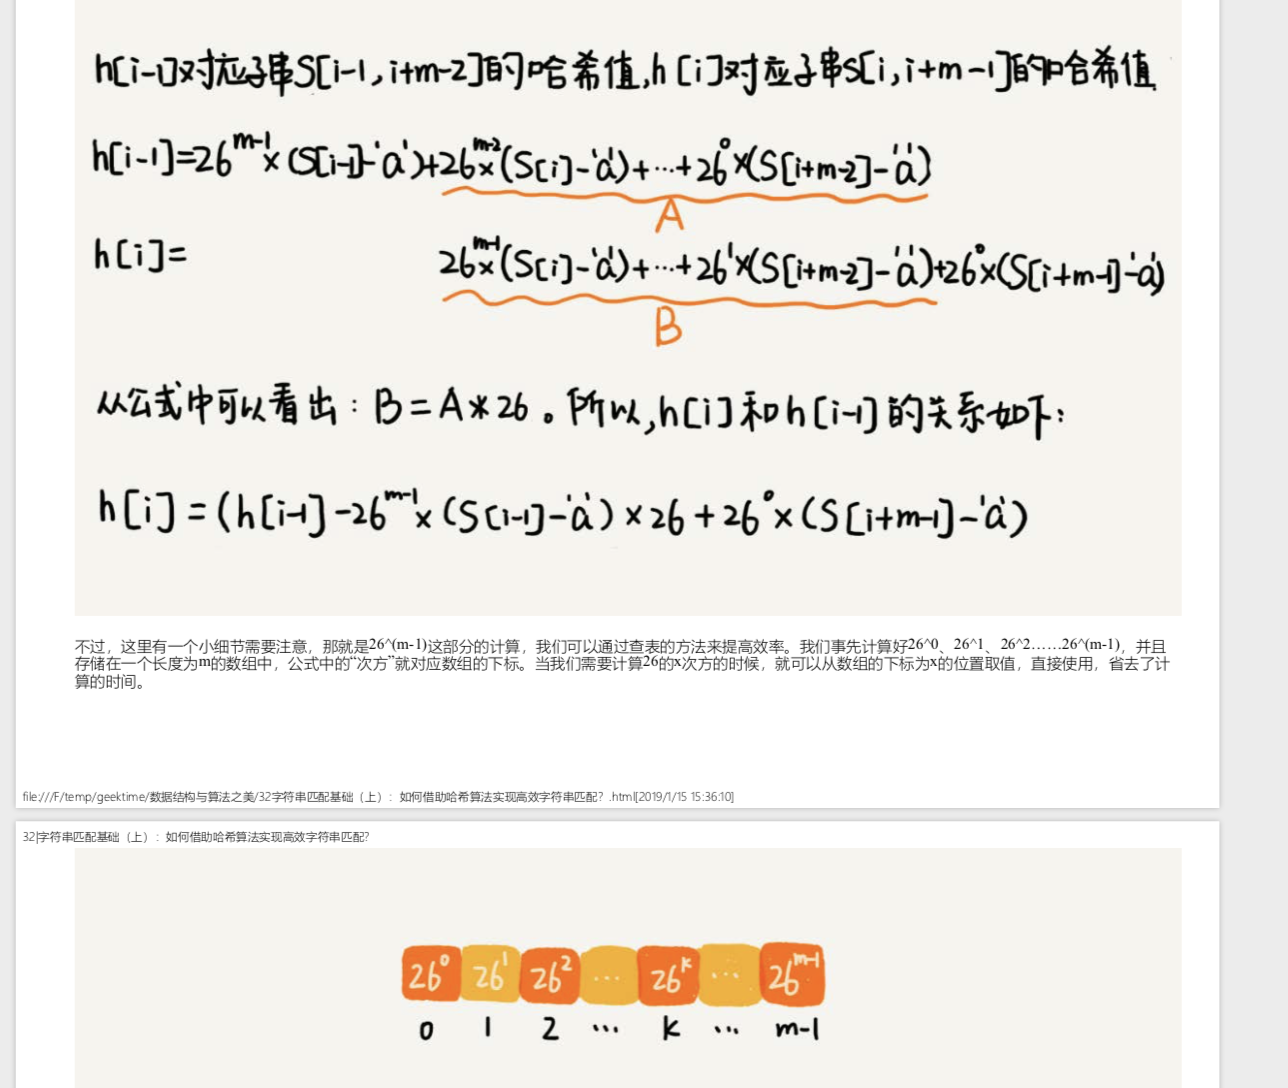 h[i-1]对应子串S[i-1,i+m-2]的哈希值,h[i]对应子串S[i,i+m-1]的哈希值.
h[i-1]=26^m-1×(S[i-1]-'a')+26^m-2×(S[i]-'a')+…+26^0×(S[i+m-2]-'a')
A
h[i]= 26^m-1×(S[i]-'a')+…+26^1×(S[i+m-2]-'a')+26^0×(S[i+m-1]-'a')
B
从公式中可以看出:B=A*26。所以,h[i]和h[i-1]的关系如下:
h[i]=(h[i-1]-26^m-1×(S[i-1]-'a')×26+26^0×(S[i+m-1]-'a')
不过，这里有一个小细节需要注意，那就是26^(m-1)这部分的计算，我们可以通过查表的方法来提高效率。我们事先计算好26^0、26^1、26^2……26^(m-1)，并且
存储在一个长度为m的数组中，公式中的“次方”就对应数组的下标。当我们需要计算26的x次方的时候，就可以从数组的下标为x的位置取值，直接使用，省去了计
算的时间。
file:///F/temp/geektime/数据结构与算法之美/32字符串匹配基础（上）：如何借助哈希算法实现高效字符串匹配？.html[2019/1/15 15:36:10]
32|字符串匹配基础（上）：如何借助哈希算法实现高效字符串匹配？
26^0 26^1 26^2 … 26^k … 26^m-1
0 1 2 … k … m-1